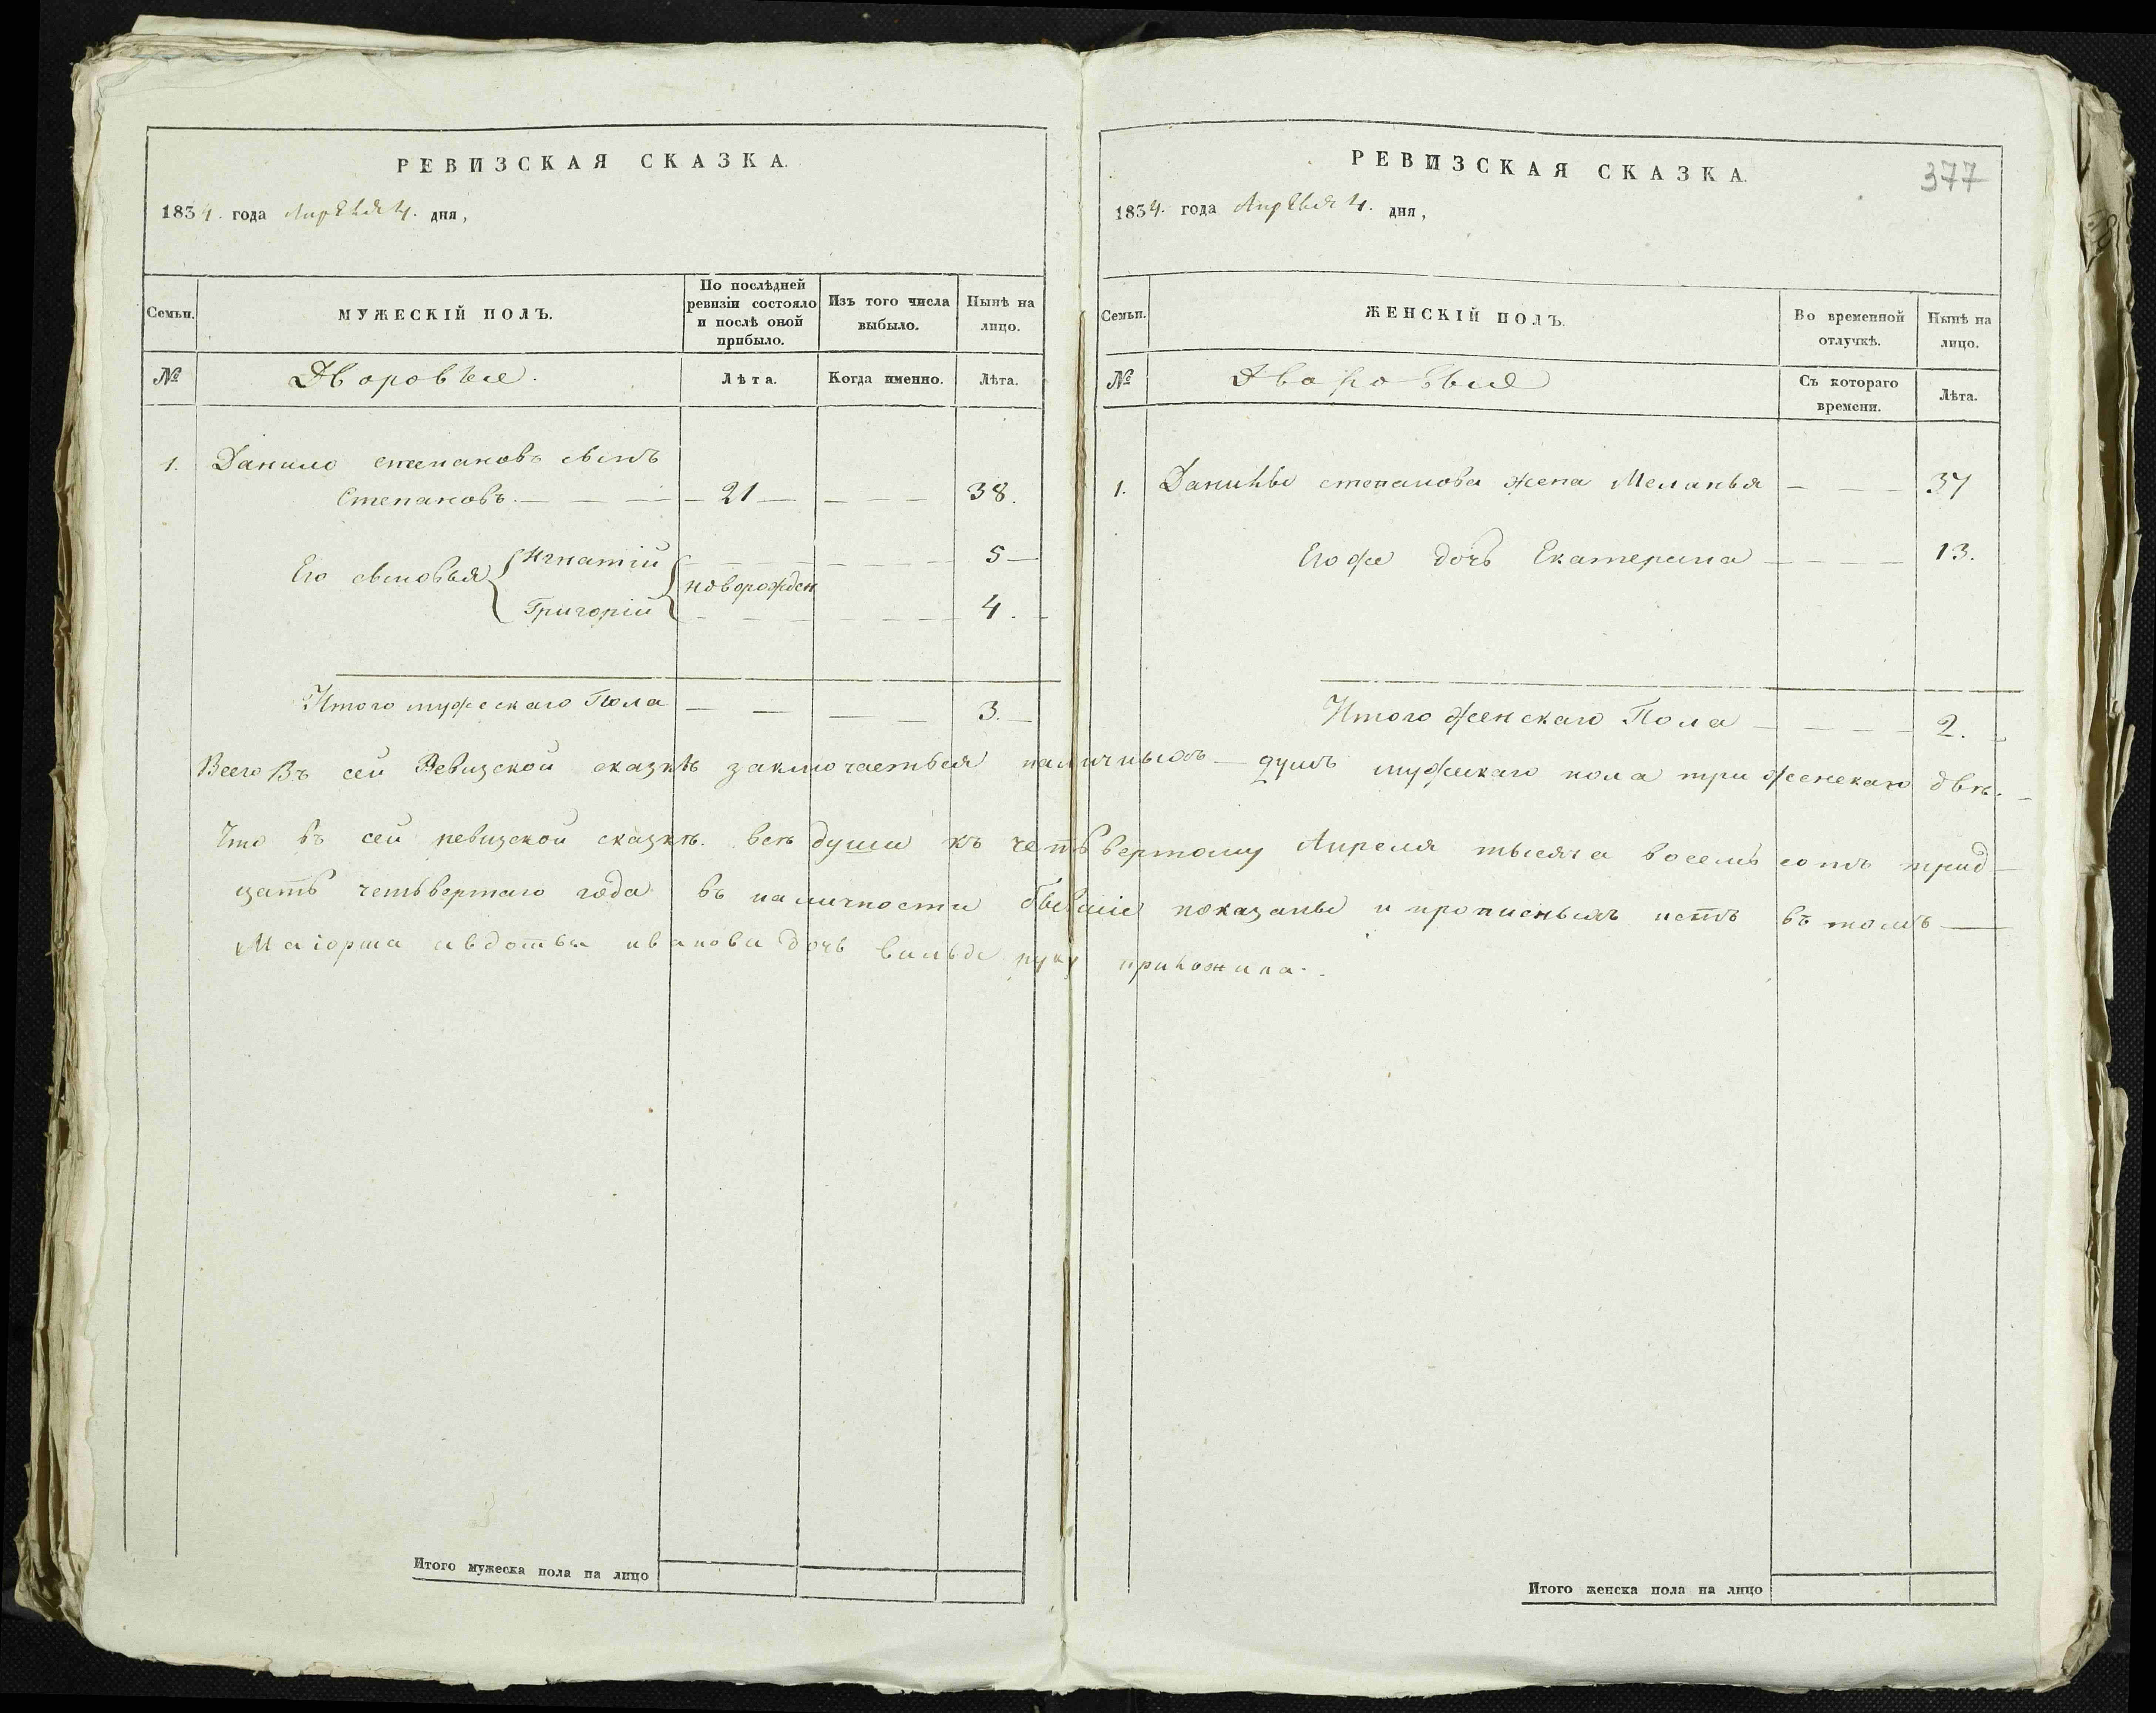 РЕВИЗСКАЯ СКАЗКА.
1834. года Апреля 4. дня,
Семьи.
МУЖЕСКІЙ ПОЛЪ.
По послѣдней ревизіи состояло и послѣ оной прибыло.
Изъ того числа выбыло.
Нынѣ на лицо.
№
Дворовые.
Лѣта.
Когда именно.
Лѣта.
1. Данило степановъ сынъ
Степановъ — — — 21 — — — — 38.
Его сыновья { Игнатій — — — 5 —
новорожден
Григорій — — — 4.
Итого мужескаго Пола — — — — 3. —
Итого мужеска пола на лицо
РЕВИЗСКАЯ СКАЗКА.
377
1834. года Апреля 4. дня,
Семьи.
ЖЕНСКІЙ ПОЛЪ.
Во временной отлучкѣ.
Нынѣ на лицо.
№
Дворовые
Съ котораго времени.
Лѣта.
1. Данилы степанова жена Меланья — — — 37
Его же дочь Екатерина — — — — 13.
Итого женскаго Пола — — — — 2.
Всего Въ сей Ревизской сказкѣ заключаеться наличныхъ — душъ мужескаго пола три женскаго двѣ. —
Что въ сей ревизской сказкѣ. всѣ души къ четьвертому Апреля тысяча восемь сотъ трид—
цать четьвертаго года въ наличности бывшіе показаны и прописныхъ нетъ въ томъ —
Маіорша авдотья иванова дочь вильде руку приложила.
Итого женска пола на лицо